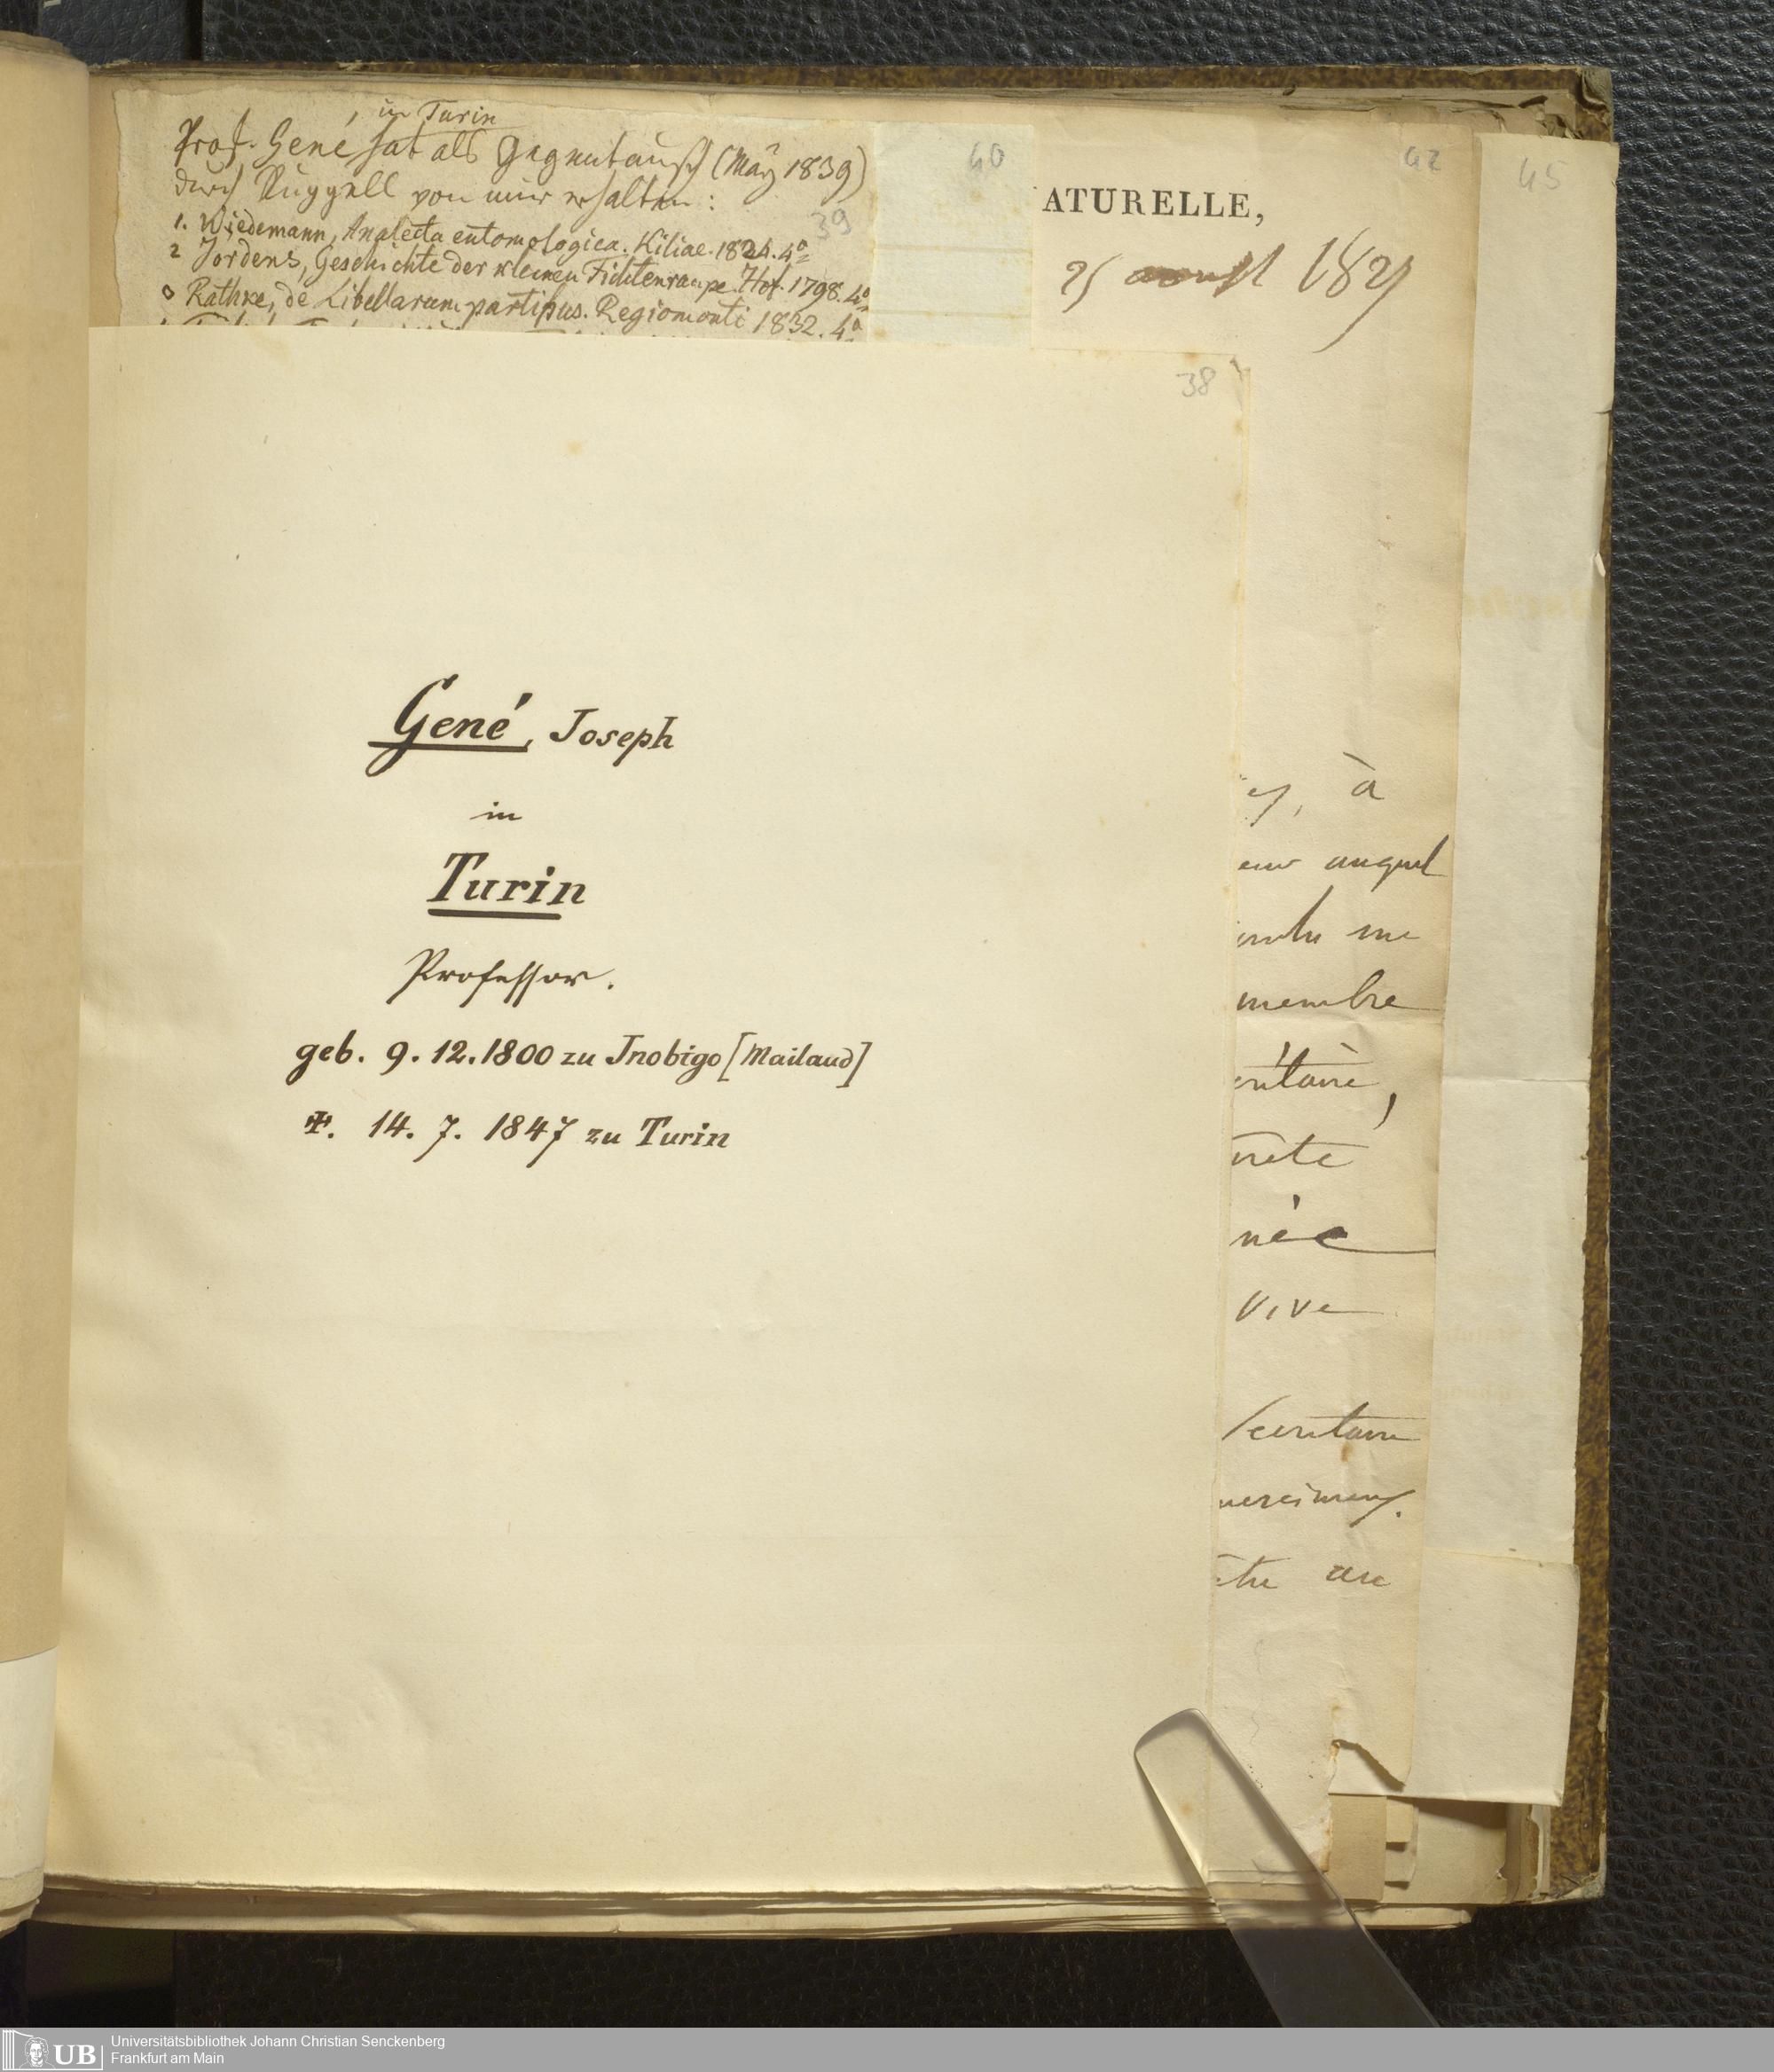 in Turin
Prof. Gené, hat als Gegentausch (May 1839)
durch Rüppell von mir erhalten:
39
1. Wiedemann, Analecta entomologica. Kiliae. 1824. 4°
2 Jördens, Geschichte der kleinen Fichtenraupe. Hof. 1798. 4°
3 Rathke, de Libellarum partibus. Regiomonti 1832. 4°
40
42
45
ATURELLE,
25 1829
38
Gené, Joseph
in
Turin
Professor.
geb. 9. 12. 1800 zu Jnobigo [Mailand]
†. 14. 7. 1847 zu Turin
à
auquel
me
membre
vive
UB
Universitätsbibliothek Johann Christian Senckenberg
Frankfurt am Main